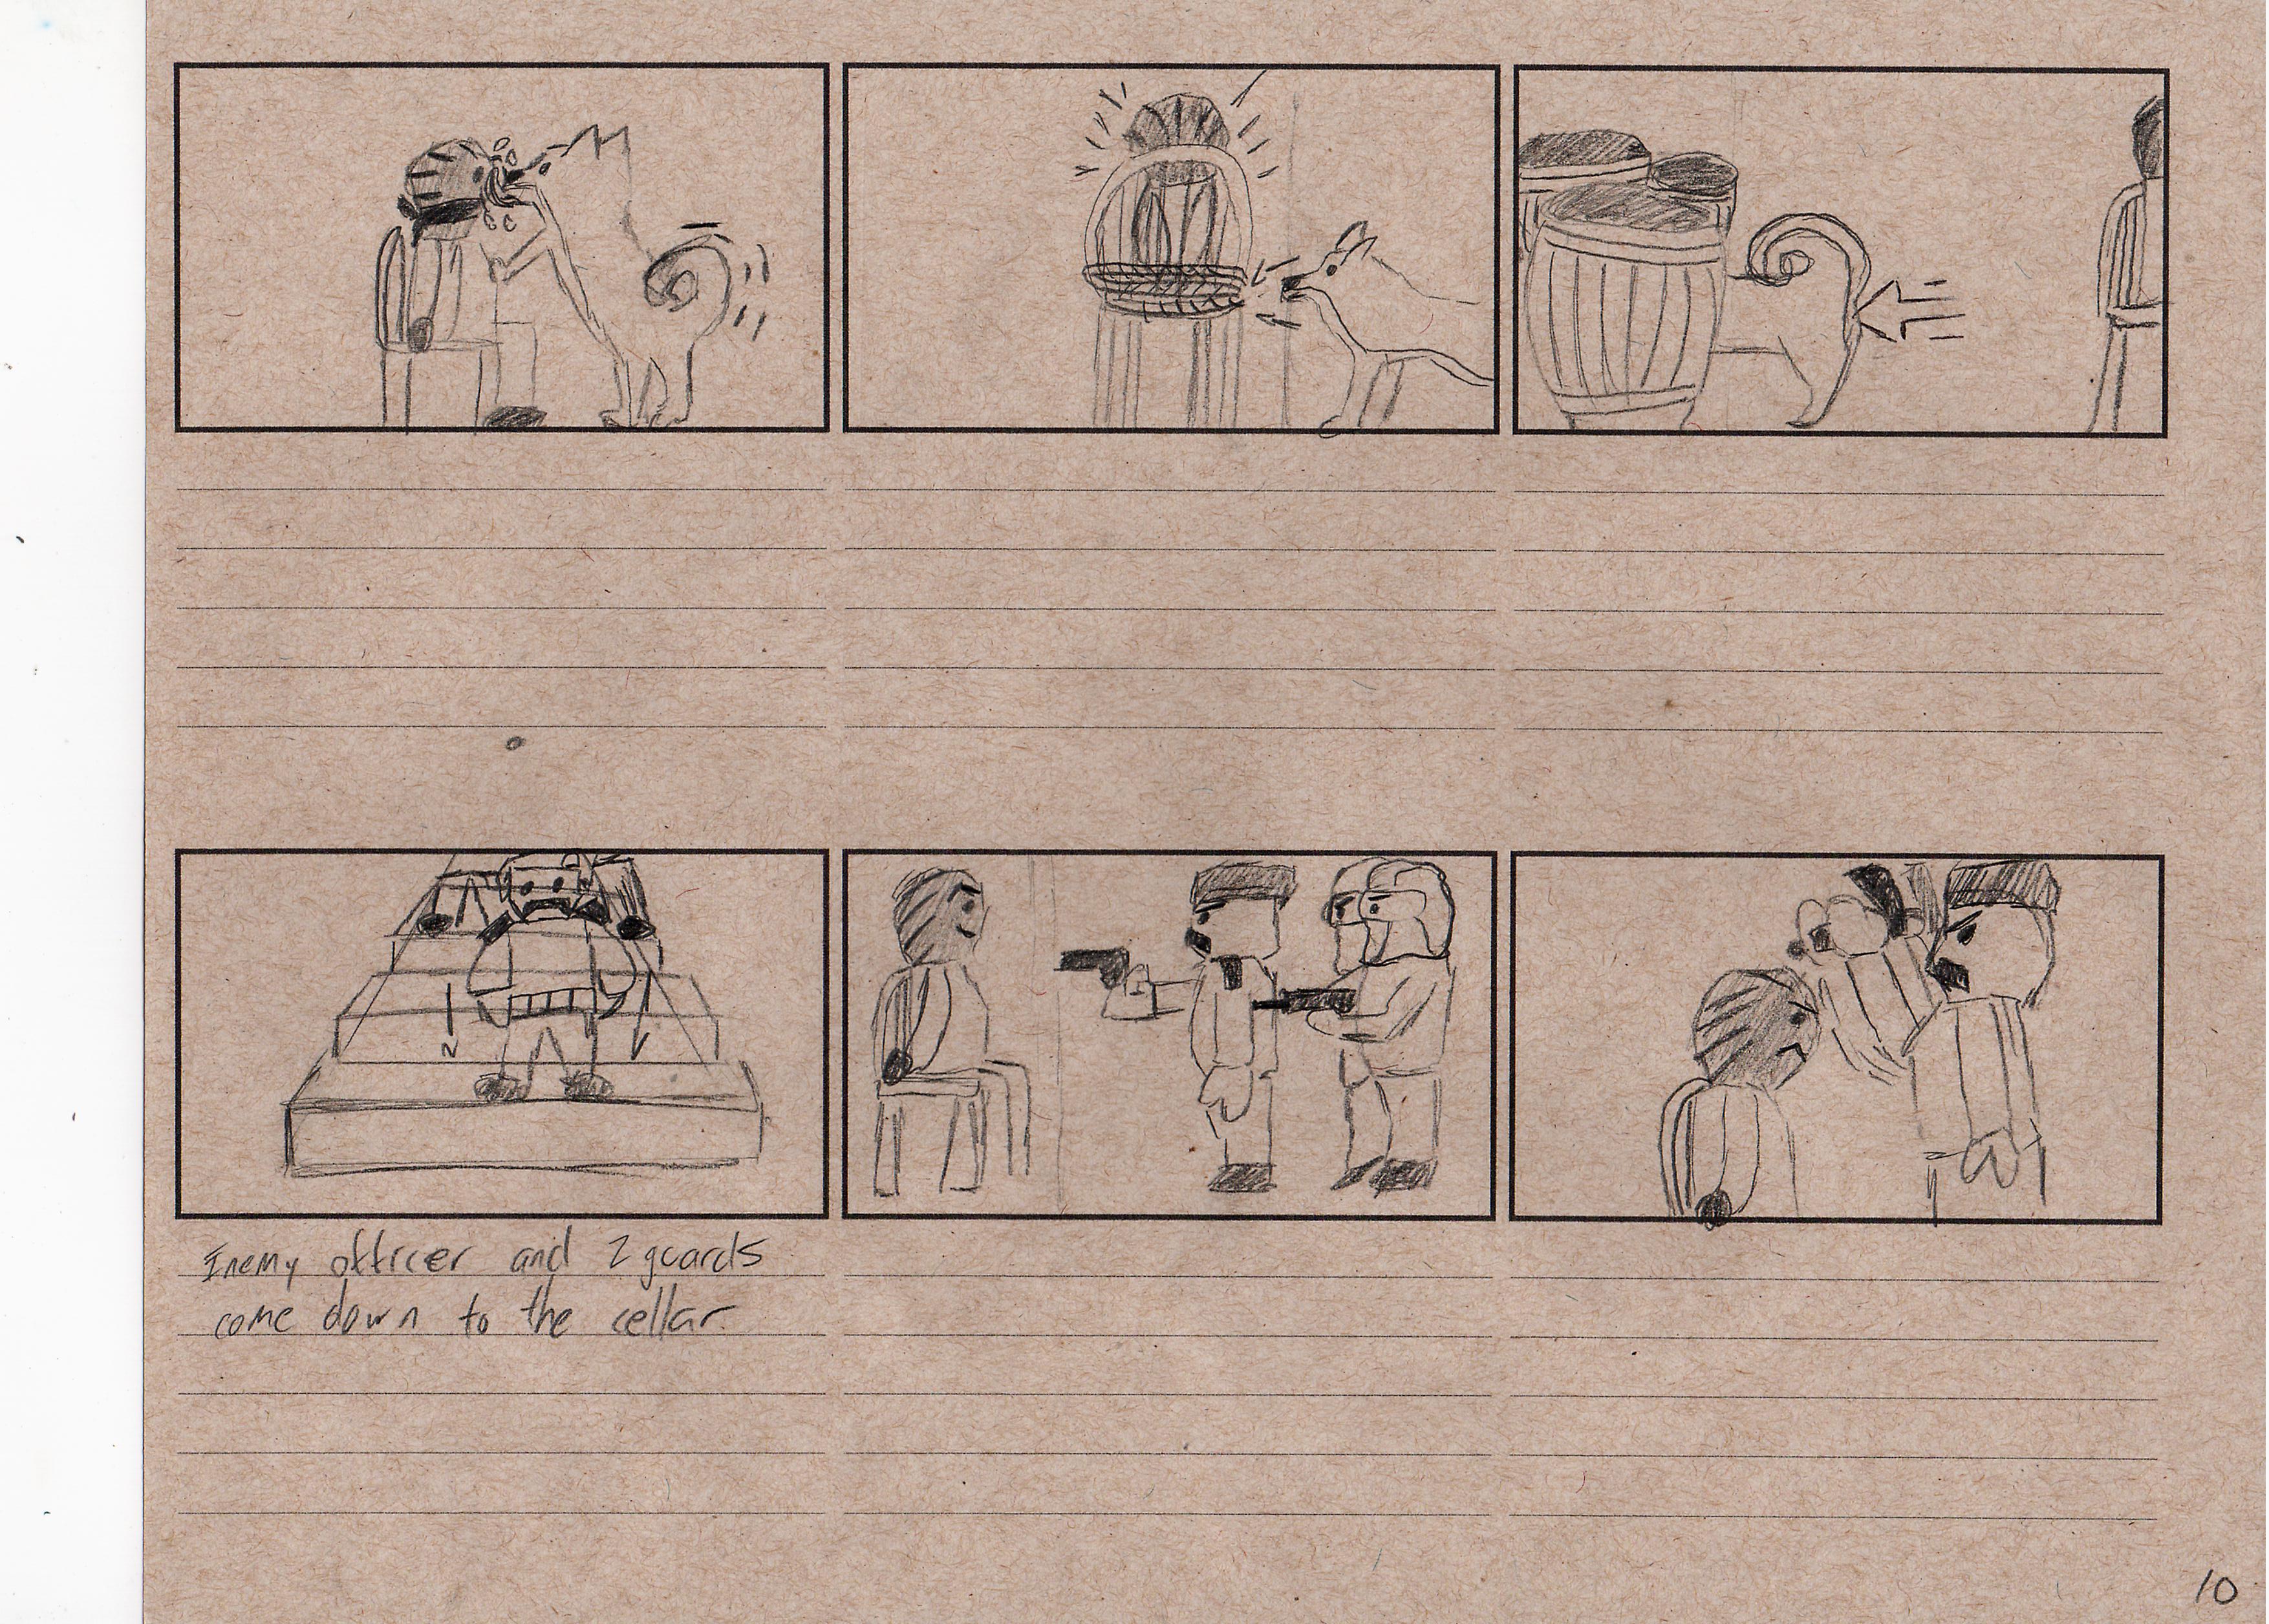 Enemy officer and 2 guards
come down to the cellar.
10